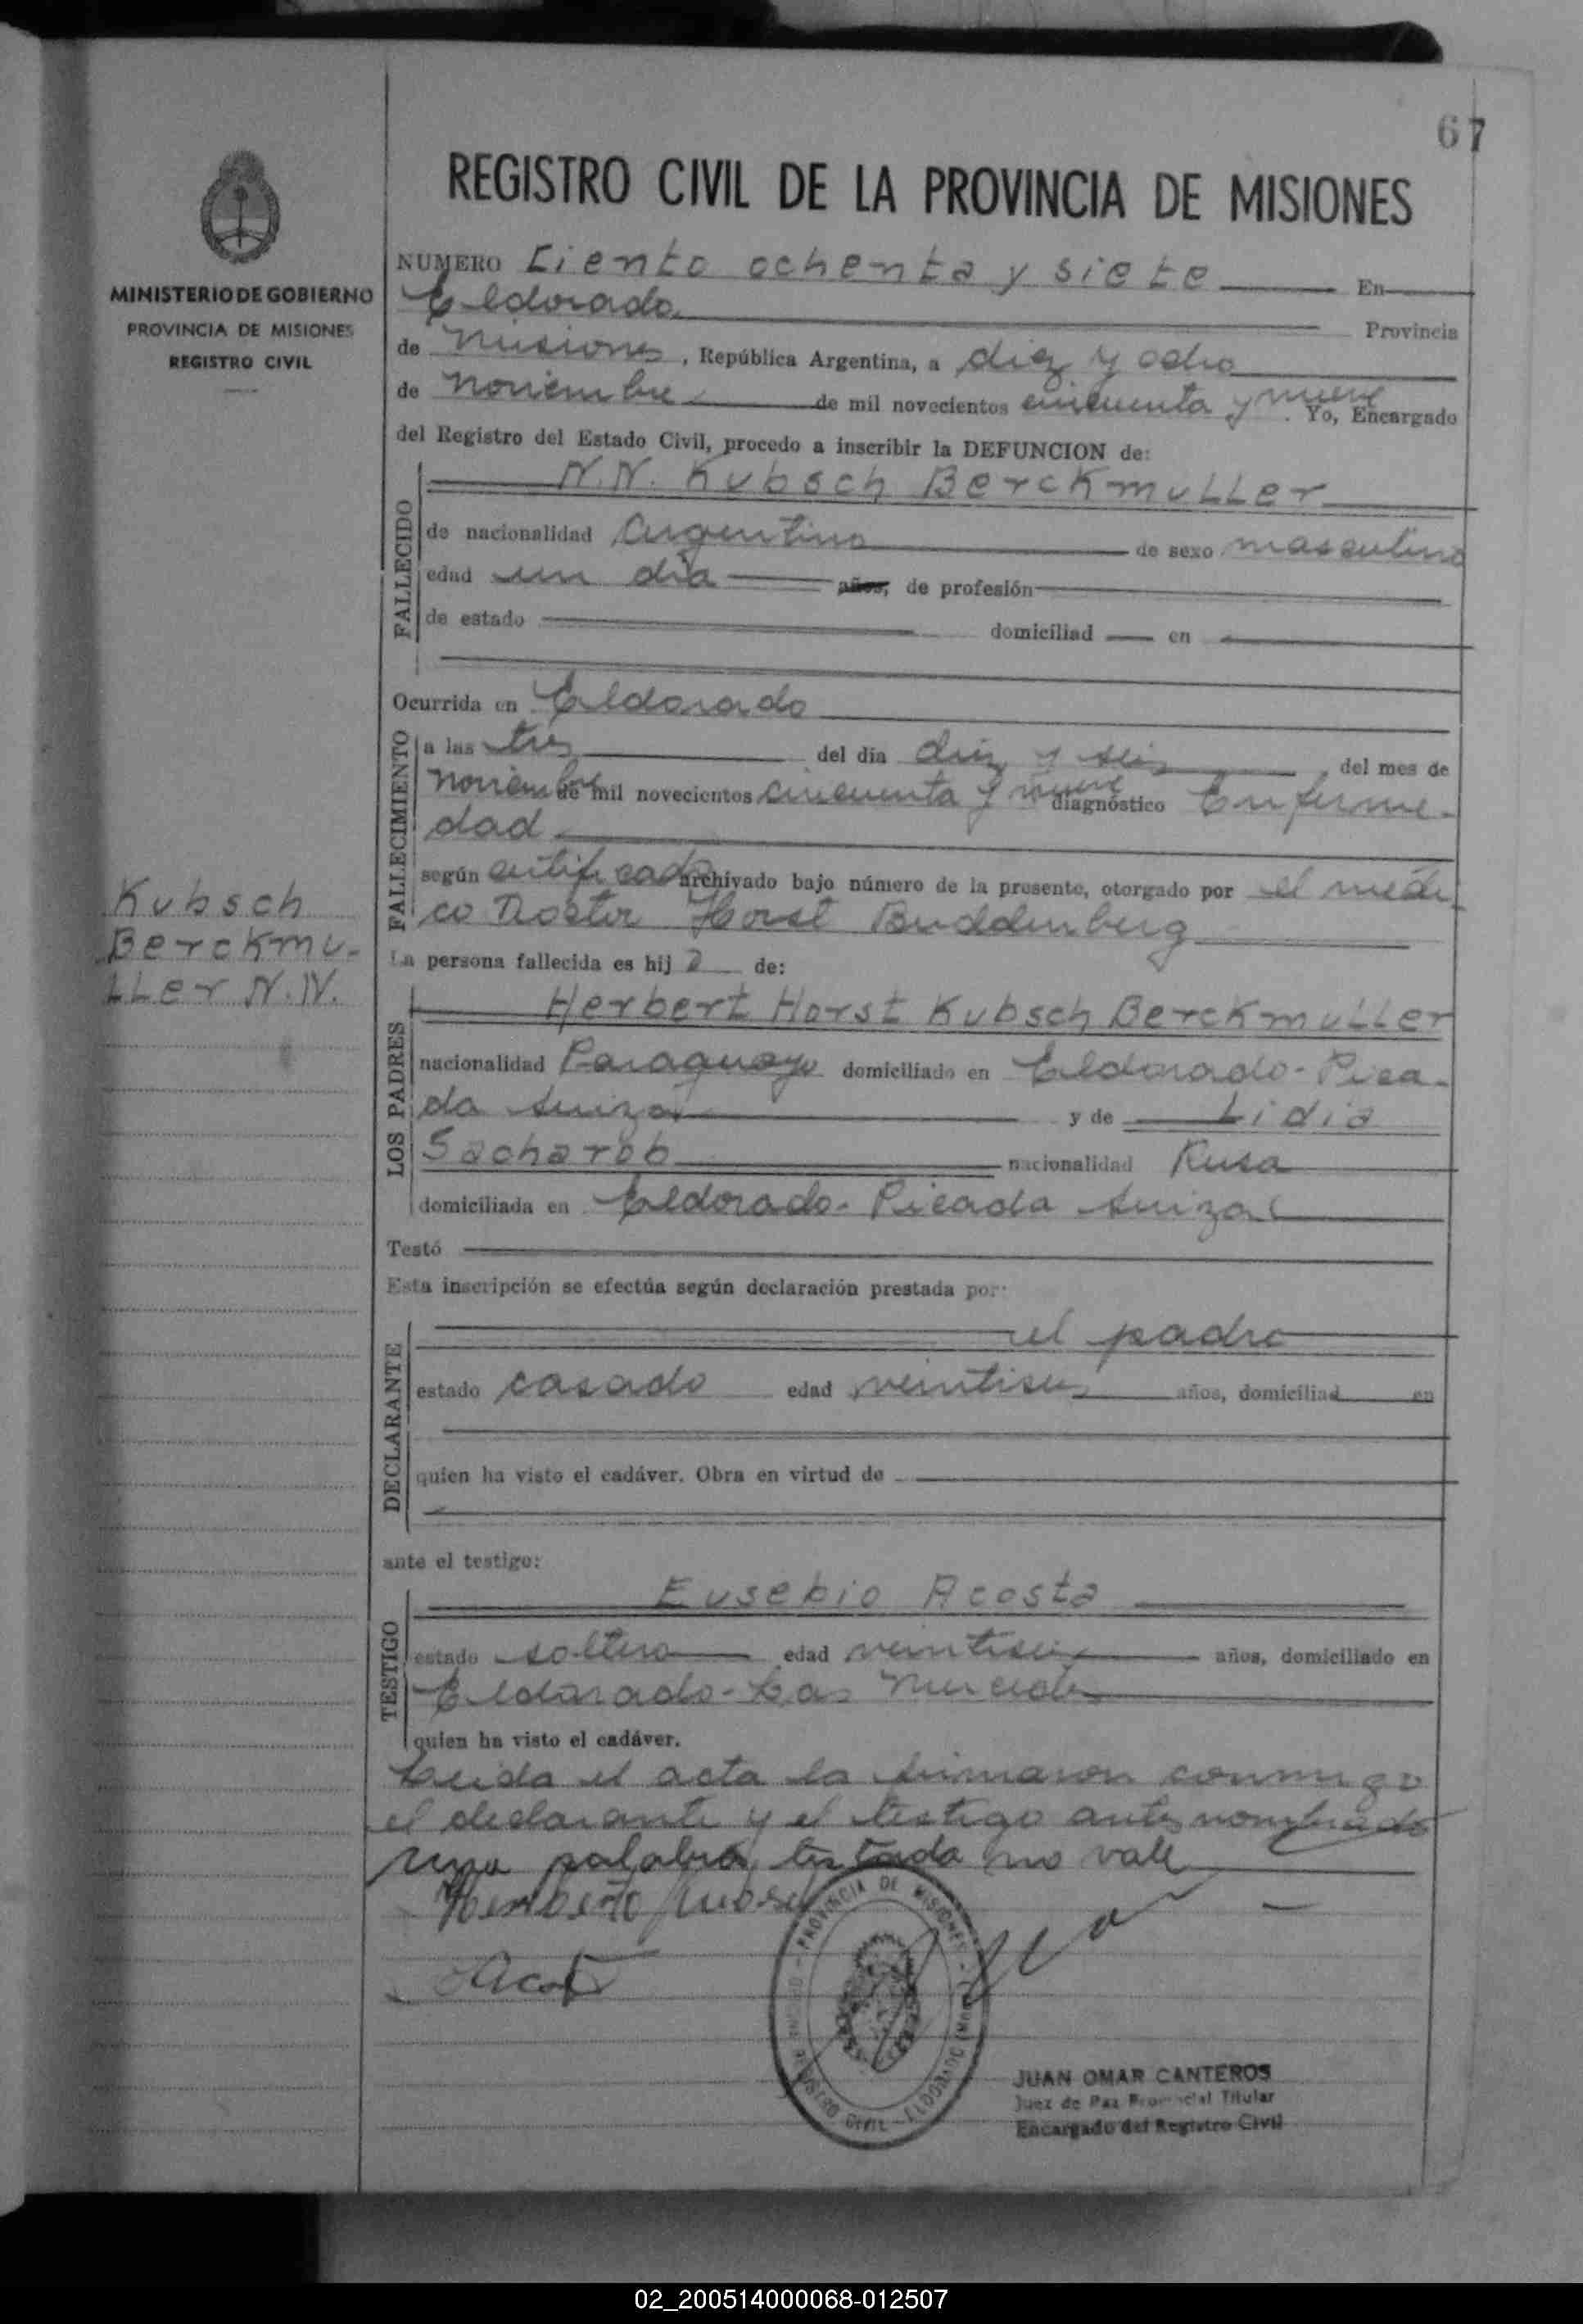 67
REGISTRO CIVIL DE LA PROVINCIA DE MISIONES
MINISTERIO DE GOBIERNO
PROVINCIA DE MISIONES
REGISTRO CIVIL
NUMERO Ciento ochenta y siete En
Eldorado Provincia
de Misiones, República Argentina, a diez y ocho
de noviembre de mil novecientos cincuenta y nueve. Yo, Encargado
del Registro del Estado Civil, procedo a inscribir la DEFUNCION de:
N.N. Kubsch Berckmuller
FALLECIDO
de nacionalidad Argentina de sexo masculino
edad un día años, de profesión
de estado domiciliad en
Ocurrida en Eldorado
FALLECIMIENTO
a las tres del día diez y seis del mes de
noviembre de mil novecientos cincuenta y nueve diagnóstico Enferme-
dad
según certificado archivado bajo número de la presente, otorgado por el médi
co Doctor Horst Buddenberg
Kubsch
Berckmu-
ller N.N.
La persona fallecida es hij o de:
LOS PADRES
Herbert Horst Kubsch Berckmuller
nacionalidad Paraguayo domiciliado en Eldorado-Pica-
da Suiza y de Lidia
Sacharob nacionalidad Rusa
domiciliada en Eldorado-Picada Suiza
Testó
Esta inscripción se efectúa según declaración prestada por:
DECLARANTE
el padre
estado casado edad veintiseis años, domiciliad en
quien ha visto el cadáver. Obra en virtud de
ante el testigo:
TESTIGO
Eusebio Acosta
estado soltero edad veintiseis años, domiciliado en
Eldorado-Las Mercedes
quien ha visto el cadáver.
Leida el acta la firmaron conmigo
el declarante y el testigo antes nombrado
una palabra testada no vale
Heriberto Kubsch
Acosta
PROVINCIA DE MISIONES
REGISTRO CIVIL - ELDORADO
JUAN OMAR CANTEROS
Juez de Paz Provincial Titular
Encargado del Registro Civil
02_200514000068-012507